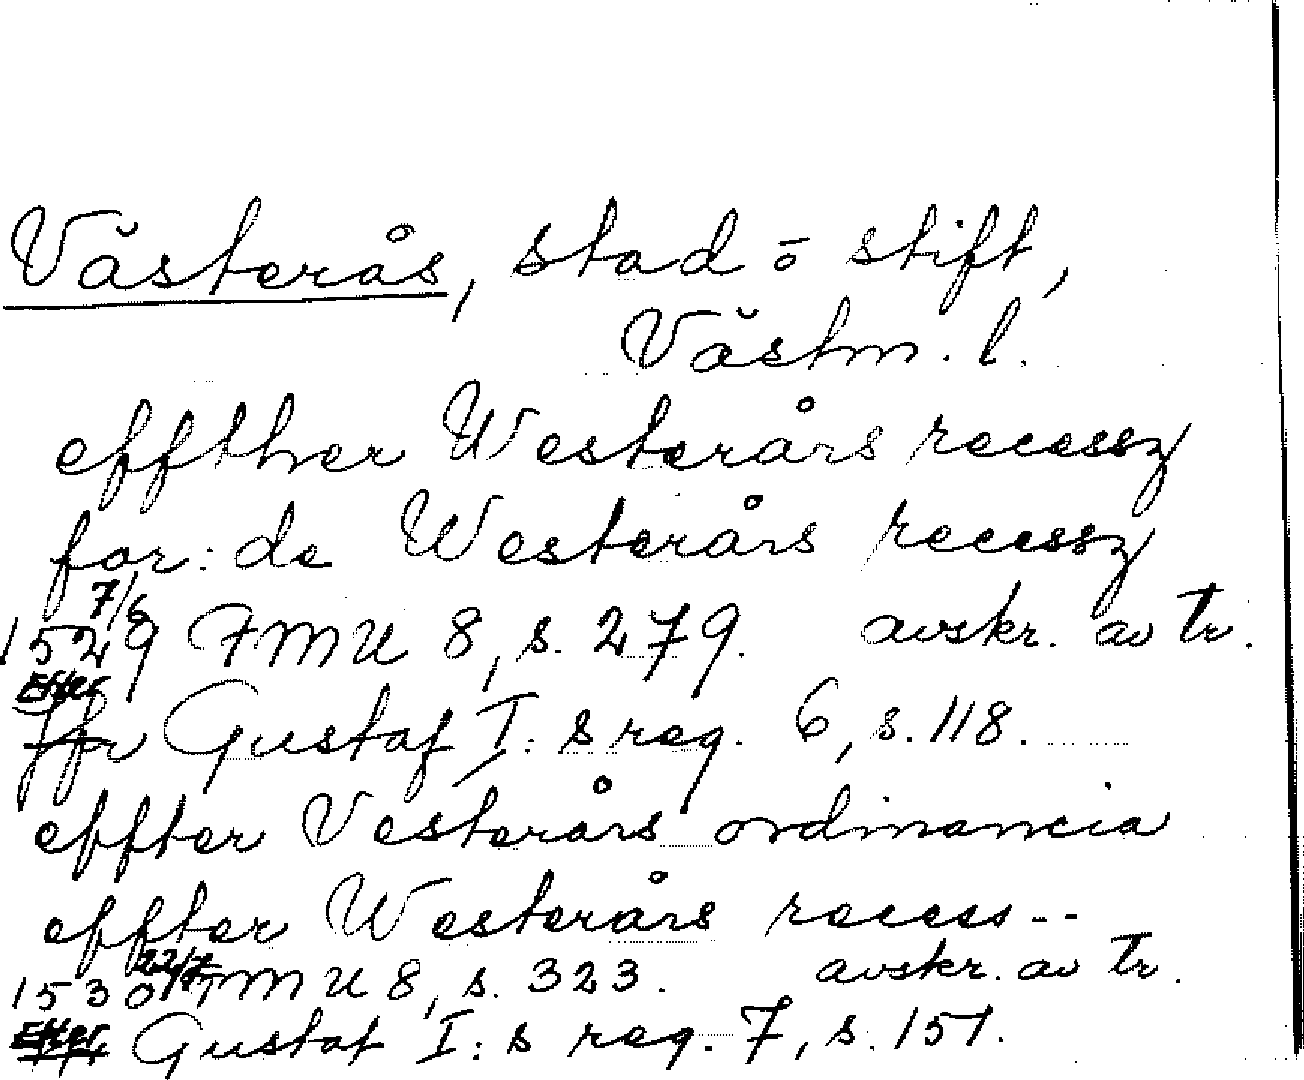 Västerås, stad o stift,
Västm. l.
effther Westerårs recessz
for: de Westerårs recessz
1529 7/6 FMU 8, s. 279. avskr. av tr.
Efter Gustaf I: s reg. 6, s. 118.
effter Vesterårs ordinancia
effter Westerårs recess--
1530 22/7 FMU 8, s. 323. avskr. av tr.
Efter Gustaf I: s reg. 7, s. 151.